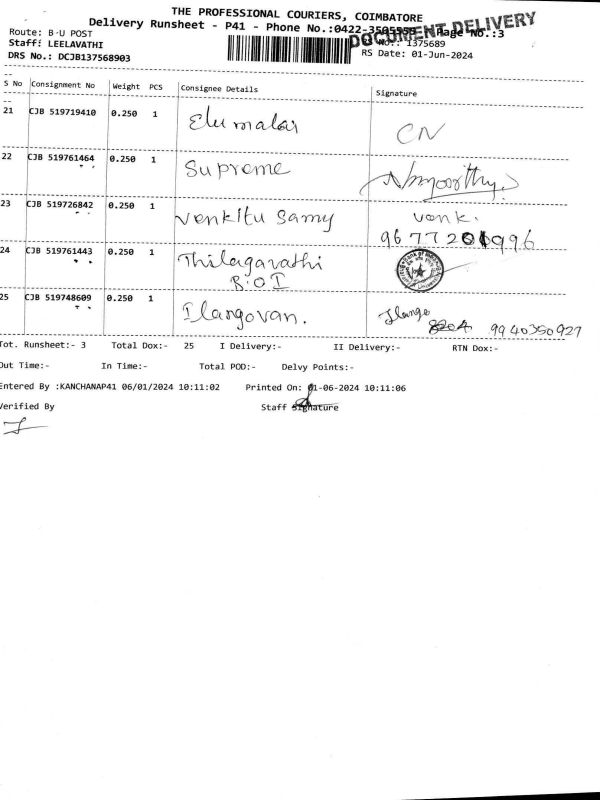 THE PROFESSIONAL COURIERS, COIMBATORE
DOCUMENT DELIVERY
Delivery Runsheet - P41 - Phone No.:0422- Page No.:3
Route: B-U POST
RS No: 1375689
Staff: LEELAVATHI
RS Date: 01-Jun-2024
DRS No.: DCJB137568903
S No Consignment No Weight PCS Consignee Details Signature
21 CJB 519719410 0.250 1 Elumalai CN
22 CJB 519761464 0.250 1 Supreme
23 CJB 519726842 0.250 1 Venkitu Samy venk.
24 CJB 519761443 0.250 1 Thilagavathi
B.O.I
25 CJB 519748609 0.250 1 Ilangovan. Ilango
9940350927
Tot. Runsheet:- 3 Total Dox:- 25 I Delivery:- II Delivery:- RTN Dox:-
Out Time:- In Time:- Total POD:- Delvy Points:-
Entered By :KANCHANAP41 06/01/2024 10:11:02 Printed On: 01-06-2024 10:11:06
Verified By Staff Signature